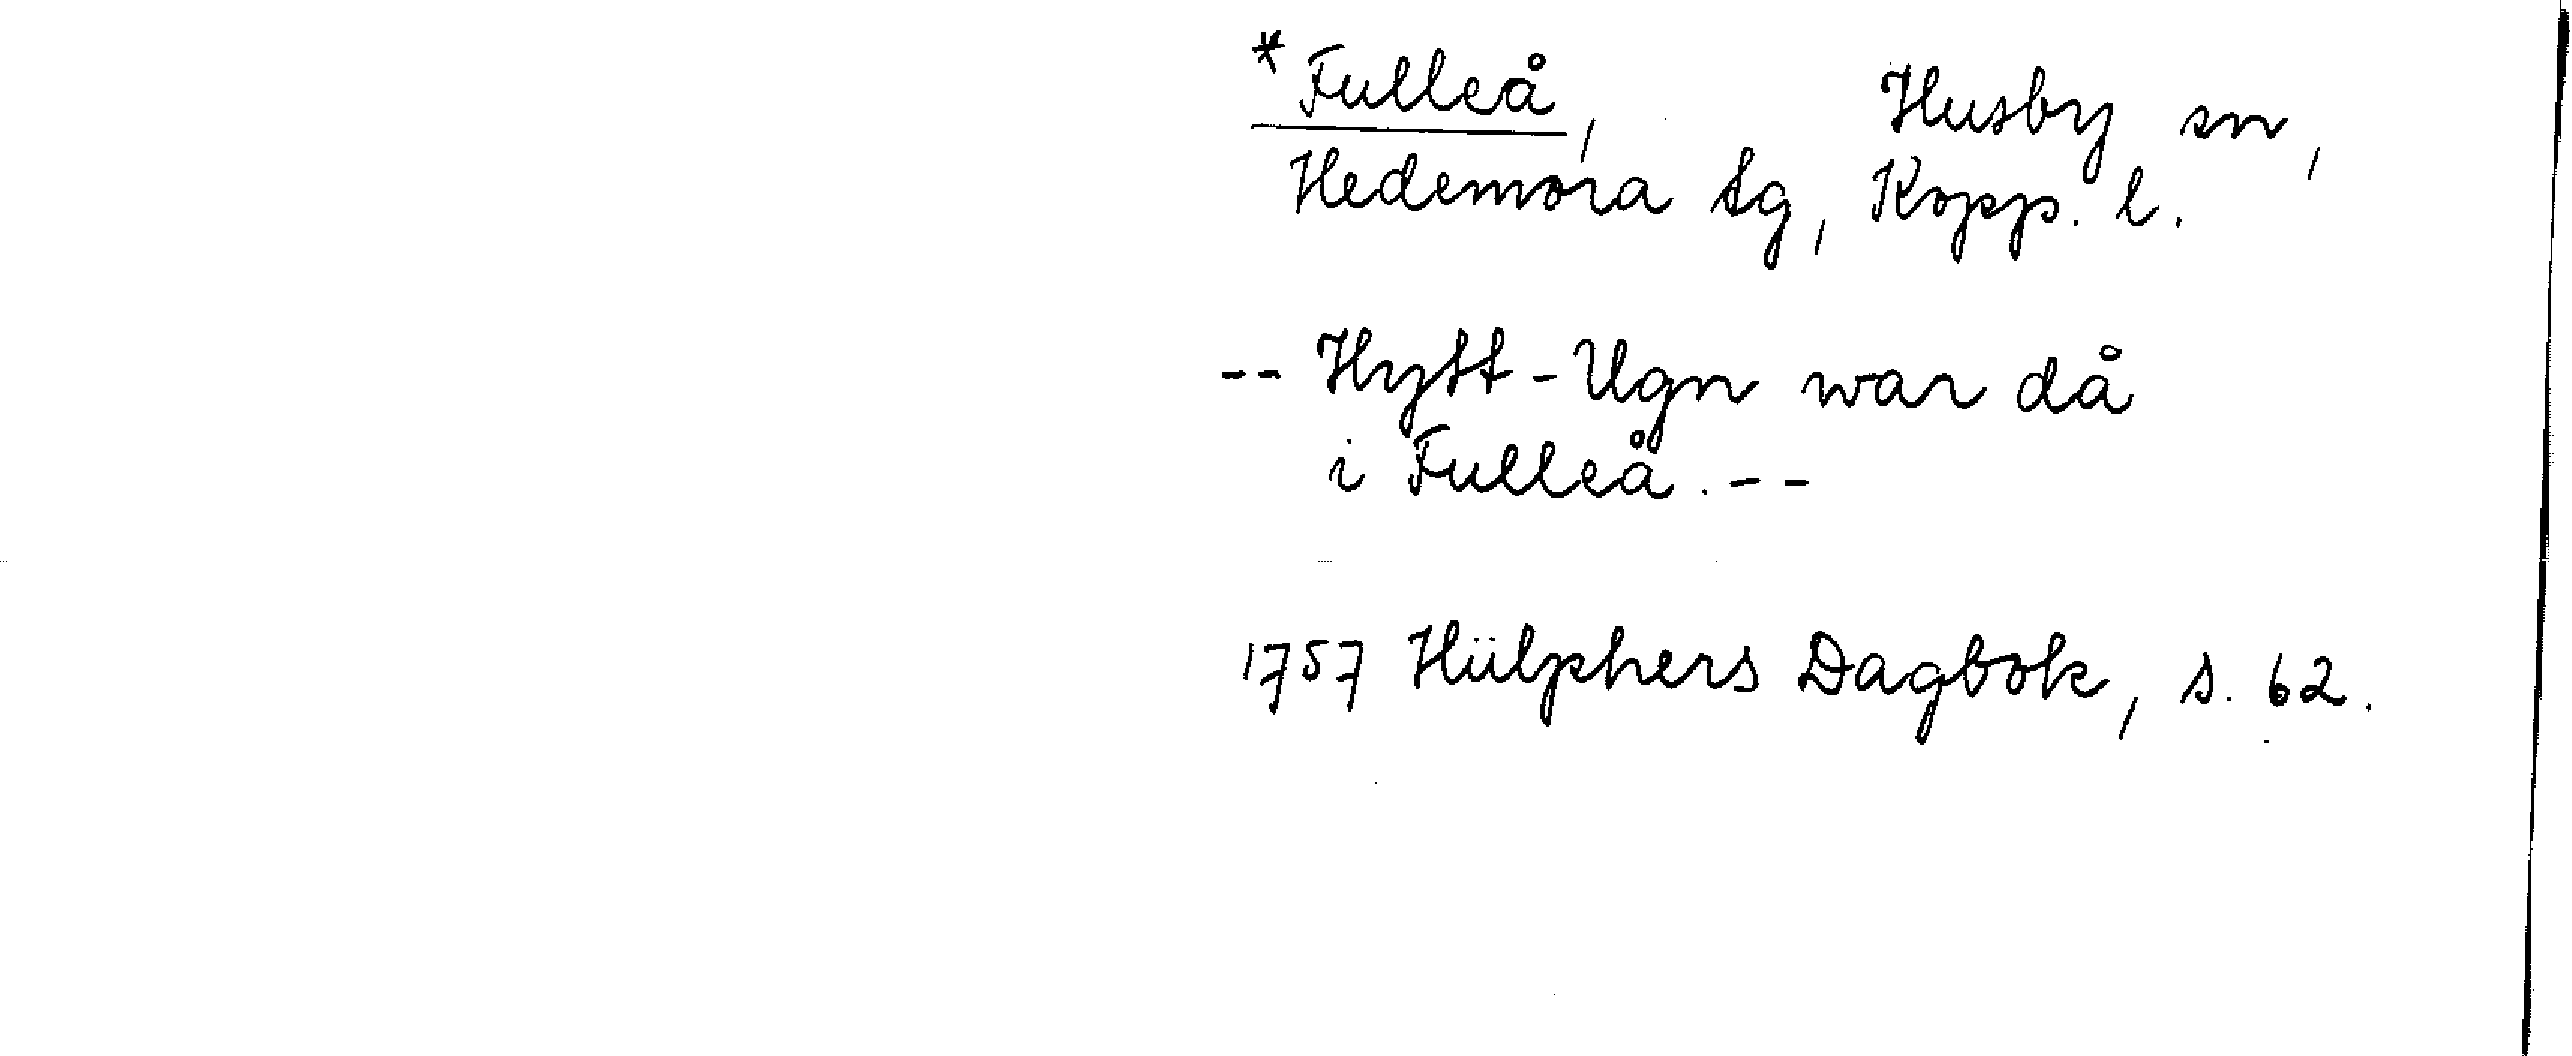 *Fulleå, Husby sn,
Hedemora tg, Kopp. l.
-- Hytt-Ugn war då
i Fulleå. --
1757 Hülphers Dagbok, s. 62.